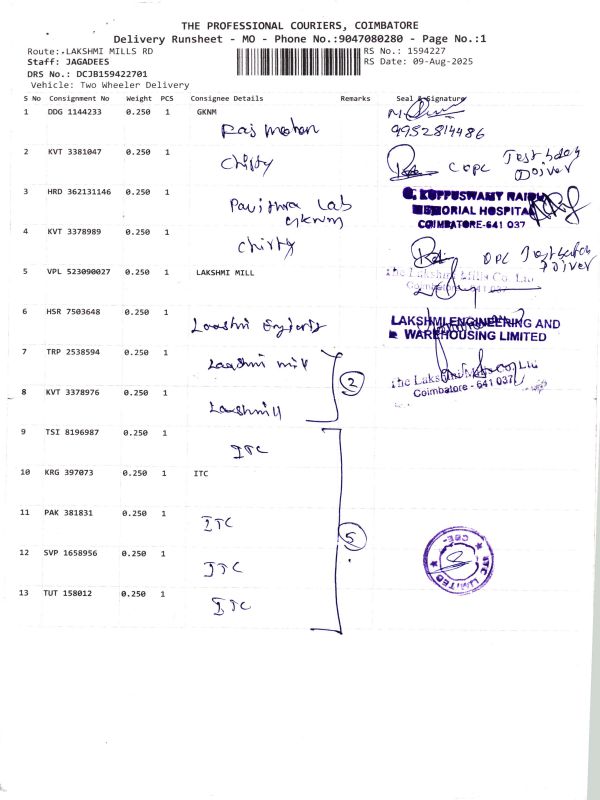 THE PROFESSIONAL COURIERS, COIMBATORE
Delivery Runsheet - MO - Phone No.:9047080280 - Page No.:1
Route: LAKSHMI MILLS RD
RS No.: 1594227
Staff: JAGADEES
RS Date: 09-Aug-2025
DRS No.: DCJB159422701
Vehicle: Two Wheeler Delivery
S No Consignment No Weight PCS Consignee Details Remarks Seal & Signature
1 DDG 1144233 0.250 1 GKNM
Raj mohan
9952814486
2 KVT 3381047 0.250 1
Chirty
3 HRD 362131146 0.250 1
Pavithra Lab
gknm
G. KUPPUSWAMY NAIDU
MEMORIAL HOSPITAL
COIMBATORE-641 037
4 KVT 3378989 0.250 1
Chirty
5 VPL 523090027 0.250 1 LAKSHMI MILL
The Lakshmi Mills Co. Ltd
Coimbatore - 641 037
6 HSR 7503648 0.250 1
LAKSHMI ENGINEERING AND
WAREHOUSING LIMITED
7 TRP 2538594 0.250 1
Laxshmi mill
2
8 KVT 3378976 0.250 1
The Lakshmi Mills Co. Ltd
Coimbatore - 641 037
9 TSI 8196987 0.250 1
ITC
10 KRG 397073 0.250 1 ITC
11 PAK 381831 0.250 1
ITC
5
12 SVP 1658956 0.250 1
ITC
ITC LIMITED
CBE
13 TUT 158012 0.250 1
ITC